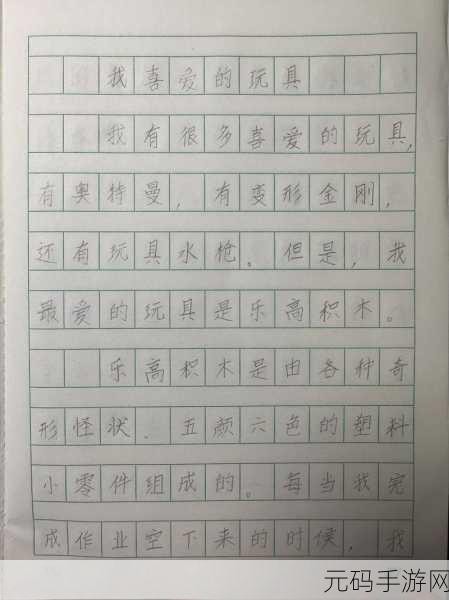 我喜爱的玩具
我有很多喜爱的玩具,
有奥特曼,有变形金刚,
还有玩具水枪。但是,我
最爱的玩具是乐高积木。
乐高积木是由各种奇
形怪状、五颜六色的塑料
小零件组成的。每当我完
成作业空下来的时候,我
元码手游网